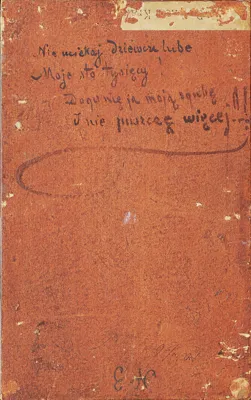 Nie uciekaj dziewczę lube
Moje sto tysięcy!
Dogonię ja moją zgubę
I nie puszczę więcej...!